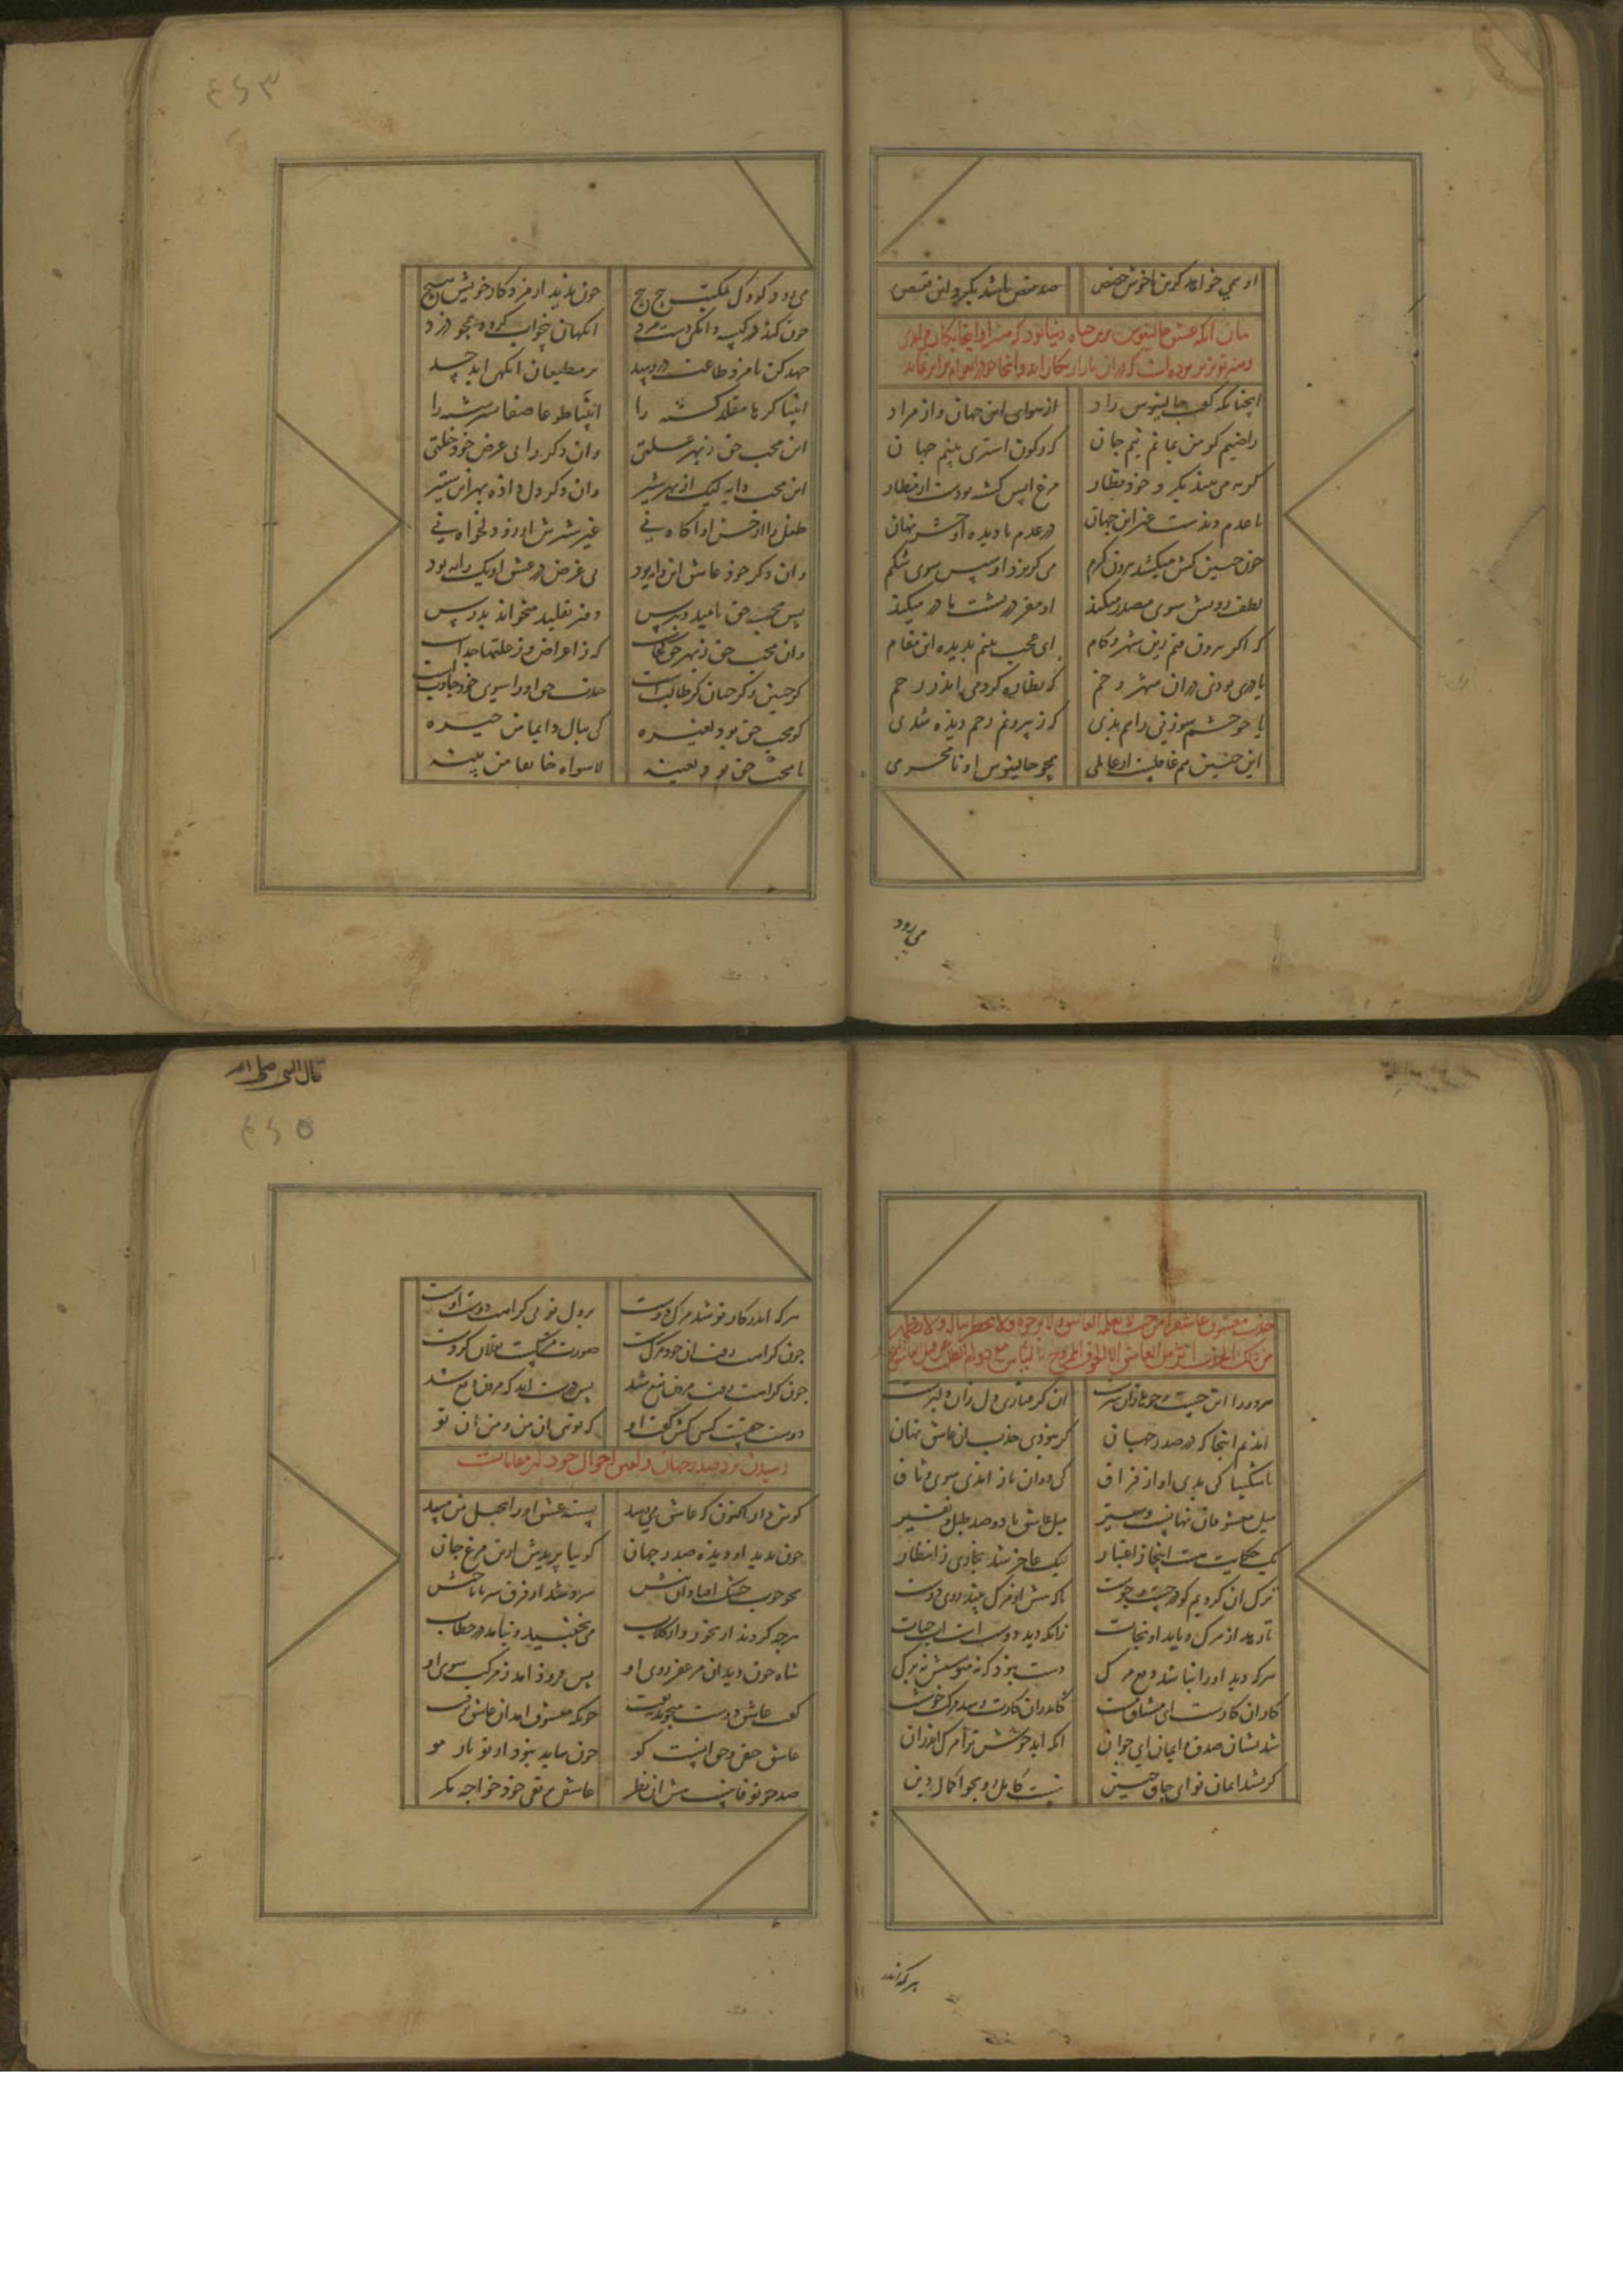 او همی خواهد کزین ناخوش حصص صد قفص باشد بگرد این قفص
بیان آنکه عشق جالینوس برین حیات دنیا بود که هنر او اینجا بکار می آید
انچنانکه گفت جالینوس راد از هوای این جهان و از مراد
راضیم کز من بماند نیم جان که ز کون استری بینم جهان
گربه می بیند بگرد خود قطار مرغ آیس گشته بودست از مطار
یا عدم دیدست غیر این جهان در عدم نادیده او حشر نهان
چون جنین کش میکشد بیرون کرم می گریزد او سپس سوی شکم
لطف رویش سوی مصدر میکند او مقر در پشت مادر میکند
که اگر بیرون فتم زین شهر و کام ای عجب بینم بدیده این مقام
یا دری بودی دران شهر وخم که نظاره کردمی اندر رحم
یا چو چشمه سوزنی راهم بدی که ز بیرونم رحم دیده شدی
این جنین هم غافلست از عالمی همچو جالینوس او نامحرمی
می رود
۴۶۳
می رود کودک بمکتب پیچ پیچ چون ندید از مزد کار خویش هیچ
چون کند در کیسه دانگی دست مزد انگهان بی خواب گردد همچو دزد
جهد کن تا مزد طاعت در رسد بر مطیعان انگهت اید حسد
ائتیا کرها مقلد گشته را ائتیا طوعا صفا سرشته را
این محب حق ز بهر علتی وان دگر را بی غرض خود خلتی
این محب دایه لیک از بهر شیر وان دگر دل داده بهر این ستیر
طفل را از حسن او آگاه نی غیر شیرش او را دلخواه نی
وان دگر خود عاشق این دایه بود بی غرض در عشق او یک رایه بود
پس محب حق بامید و بترس دفتر تقلید میخواند بدرس
وان محب حق ز بهر حق کجاست که ز اعراض و ز علتها جداست
گر چنین و گر چنان گر طالبست جذب حق او را سوی خود جاذبست
گو محب حق بود لغیره کی ینال دایما من خیره
یا محب حق بود لعینه لا سواه خائفا من بینه
قال النبی صلی الله
جذب معشوق عاشق را من حیث لا یعلمه العاشق ولا یرجوه ولا یخطر بباله ولا یظهر
من ذلک الجذب اثر من العاشق الا الخوف الممزوج بالیأس مع دوام الطلب
ان گر متاری دل زان دلبرست
امذیم اینجا که در صدر جهان گر نبودی جذب ان عاشق نهان
ناشکیبا کی بدی او از فراق کی دوان باز امدی سوی وثاق
میل معشوقان نهانست و ستیر میل عاشق با دو صد طبل و نفیر
یک حکایت هست اینجا ز اعتبار لیک عاجز شد بخاری ز انتظار
ترک ان کردیم کو در جست و جوست تاکه پیش از مرگ بیند روی دوست
تا رهد از مرگ و یابد او نجات زانکه دید دوست است اب حیات
هرکه دید او را نباشد دفع مرگ دوست نبود که نه میوستش نه برگ
کار ان کارست ای مشتاق مست کاندران کار ار رسد مرگت خوشست
شد نشان صدق ایمان ای جوان انکه اید خوش ترا مرگ اندران
گر نشد ایمان تو ای جان چنین نیست کامل رو بجو اکمال دین
هرکه اندر
۴۶۵
هرکه اندر کار تو شد مرگ دوست بر دل تو بی کراهت دوست اوست
چون کراهت رفت ان خود مرگ نیست صورت مرگست و نقلان کردنیست
چون کراهت رفت مردن نفع شد پس درست اید که مردن دفع شد
دوست حقست و کسی کش گفت او که توی ان من و من ان تو
رسیدن نزد صدر جهان
گوش دار اکنون که عاشق می رسد بسته عشق او را بحبل من مسد
چون بدید او دیده صدر جهان گوییا پریدش از تن مرغ جان
همچو چوب خشک افتاد ان تنش سرد شد از فرق سر تا ناخنش
هرچه کردند از بخور و از گلاب می نجنبید و نیامد در خطاب
شاه چون دید ان مزعفر روی او پس فرود امد ز مرکب سوی او
گفت عاشق دوست میجوید بتفت چونکه معشوق امد ان عاشق برفت
عاشق حقی و حق انست کو چون بیاید نبود از تو تار مو
صد چو تو فانیست پیش ان نظر عاشقی بر نفی خود خواجه مگر